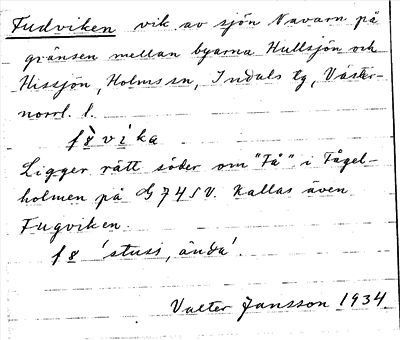 Fudviken vik av sjön Navarn på
gränsen mellan byarna Hullsjön och
Hissjön, Holms sn, Indals tg, Väster-
norrl. l.
Ligger rätt söder om "Få" i Fågel-
holmen på G 74 SV. Kallas även
Fugviken.
'stuss, ända'.
Valter Jansson 1934